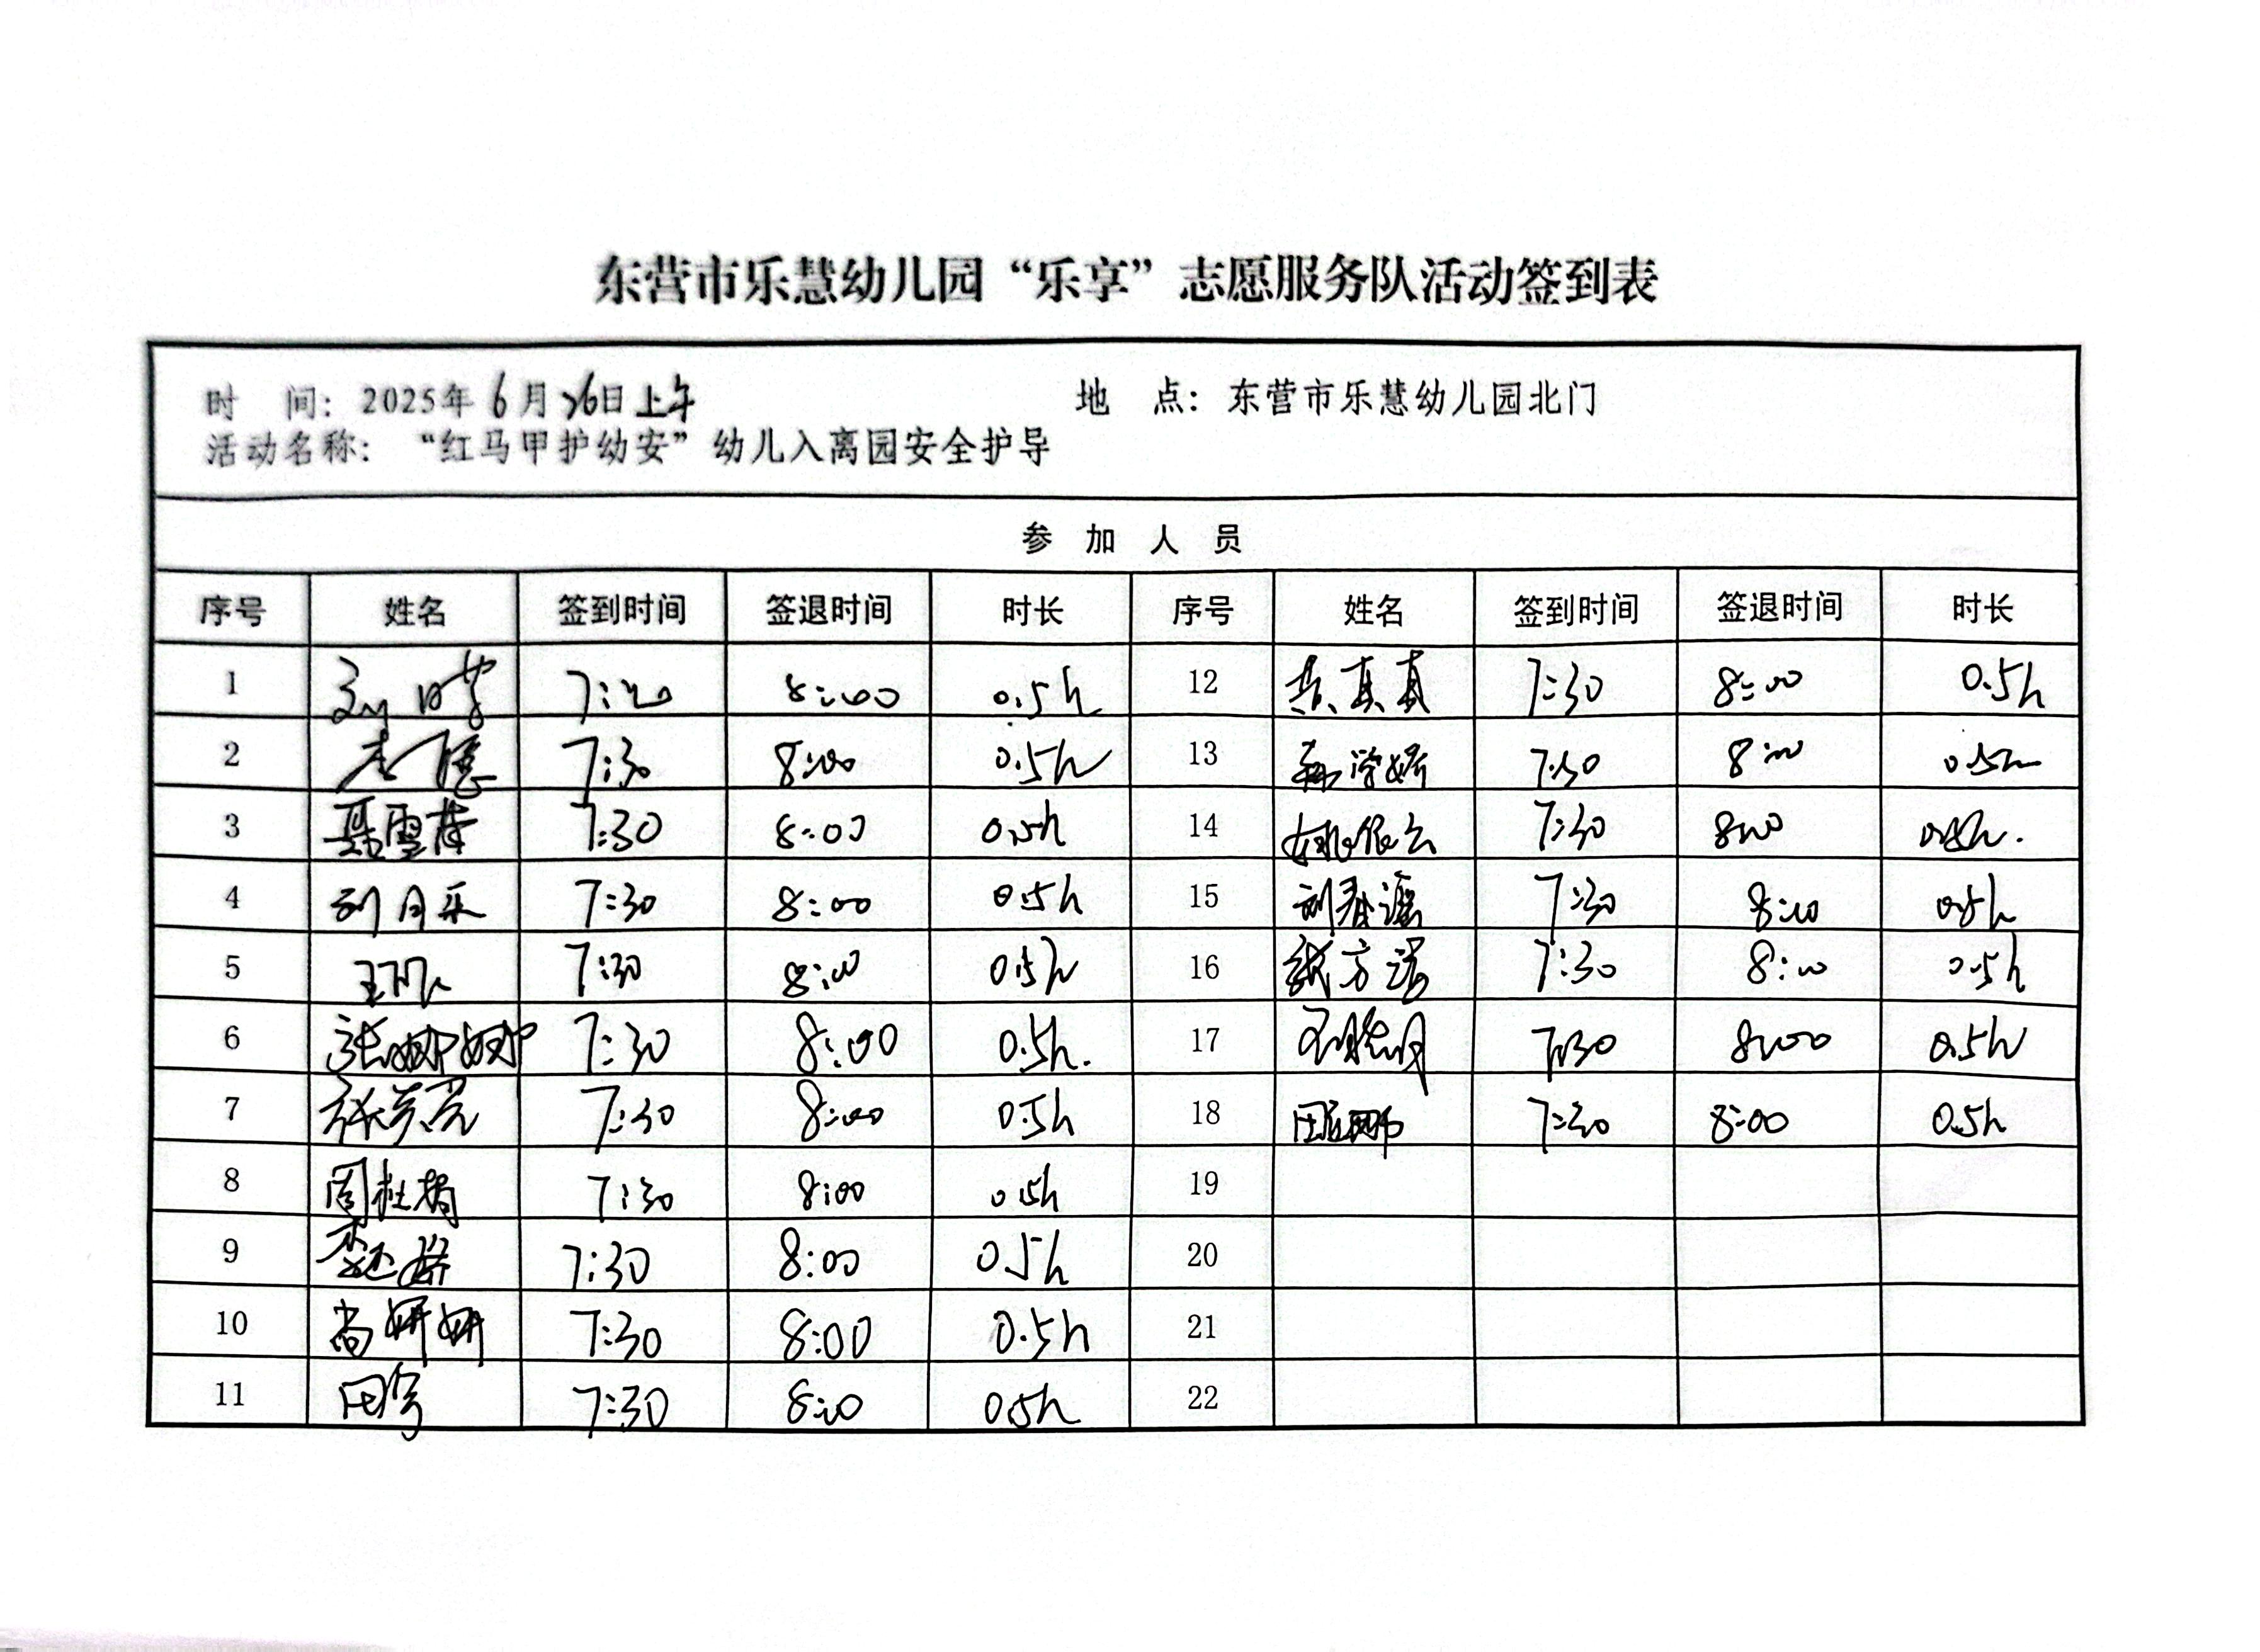 东营市乐慧幼儿园“乐享”志愿服务队活动签到表
时 间：2025年6月26日上午 地 点：东营市乐慧幼儿园北门
活动名称：“红马甲护幼安”幼儿入离园安全护导
参 加 人 员
序号 姓名 签到时间 签退时间 时长 序号 姓名 签到时间 签退时间 时长
1 8:00 0.5h 12 真真 7:30 8:00 0.5h
2 7:30 8:00 0.5h 13 7:30 8:00 0.5h
3 聂雪 7:30 8:00 0.5h 14 姚依云 7:30 8:00 0.5h
4 刘月采 7:30 8:00 0.5h 15 刘春 7:30 8:00 0.5h
5 7:30 8:00 0.5h 16 7:30 8:00 0.5h
6 张娜娜 7:30 8:00 0.5h. 17 7:30 8:00 0.5h
7 张芳 7:30 8:00 0.5h 18 7:30 8:00 0.5h
8 周桂娟 7:30 8:00 0.5h 19
9 李 娇 7:30 8:00 0.5h 20
10 尚妍妍 7:30 8:00 0.5h 21
11 田宁 7:30 8:00 0.5h 22